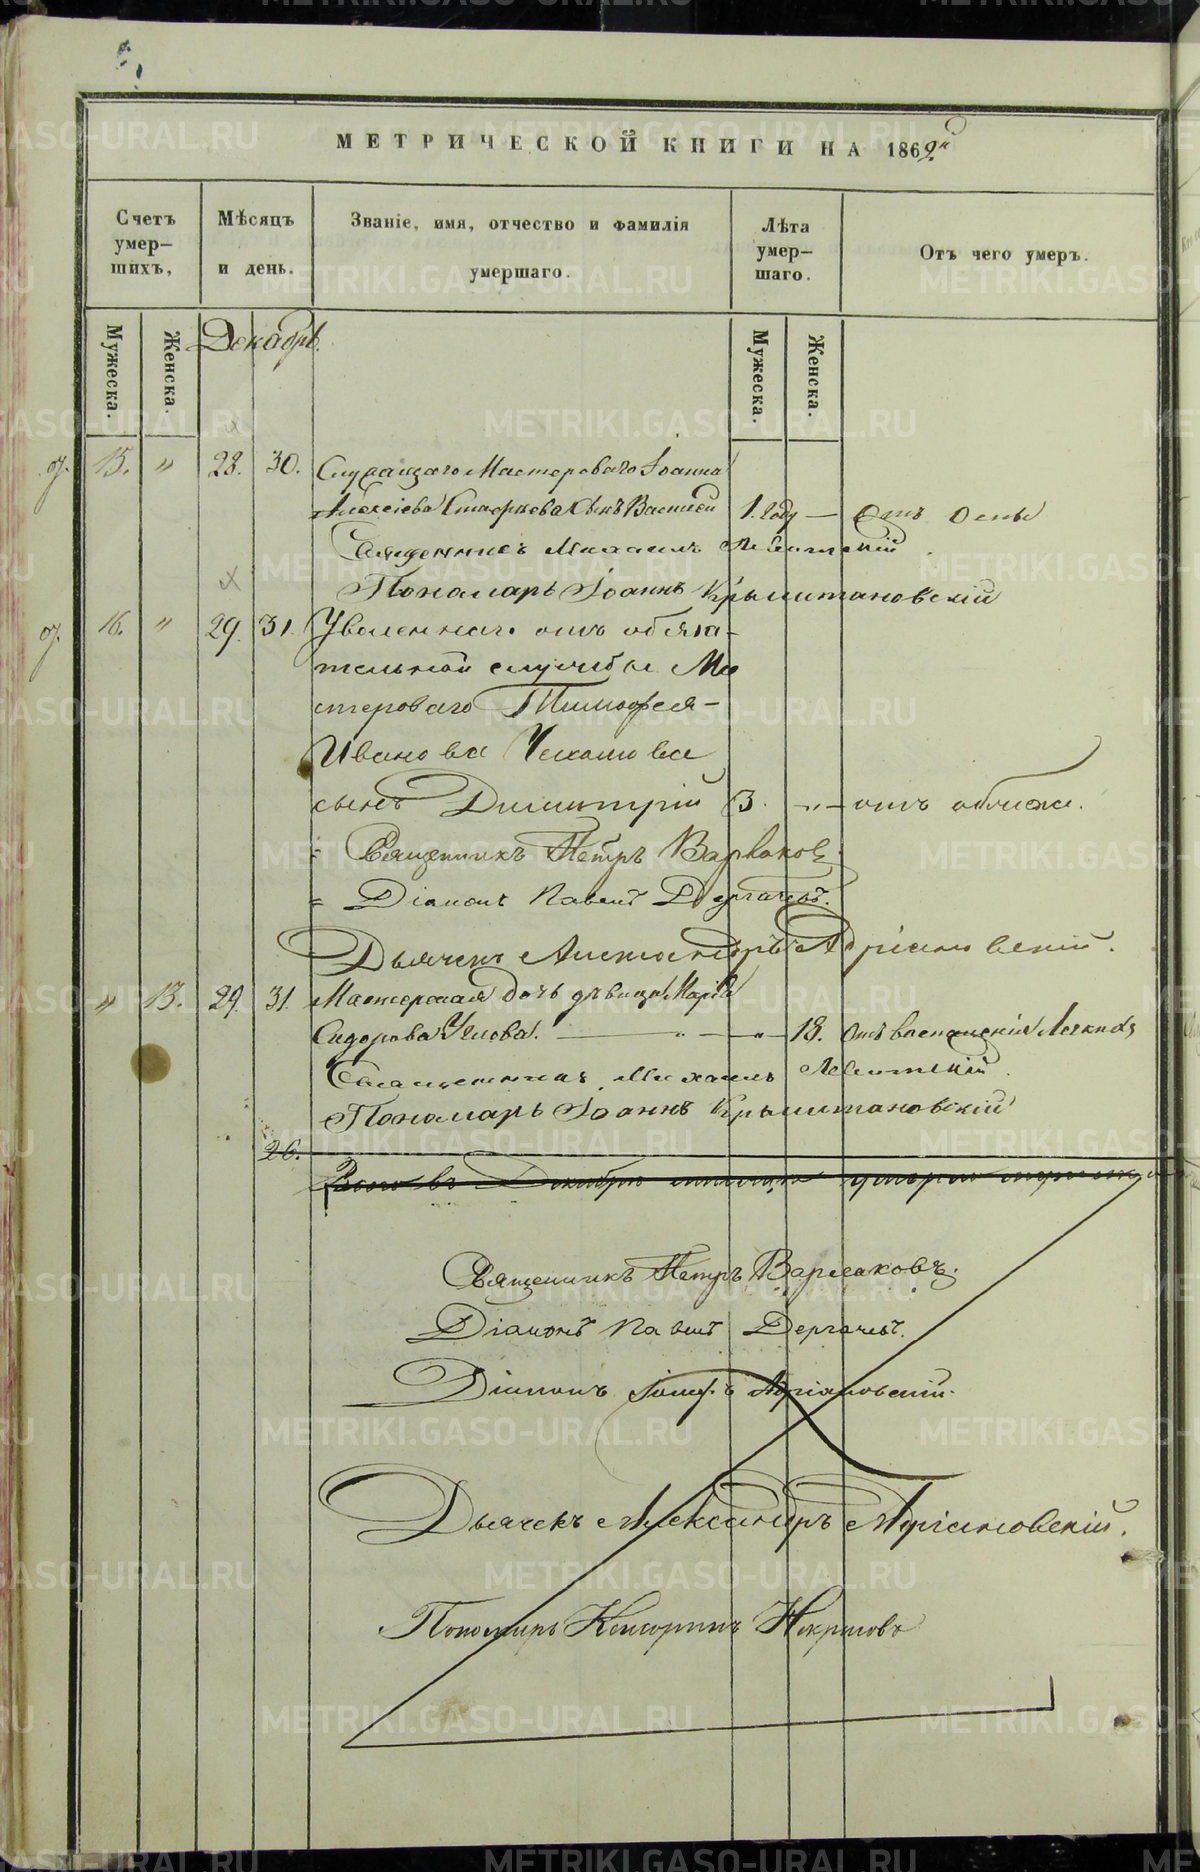 МЕТРИЧЕСКОЙ КНИГИ НА 1862й
Счетъ умер-
шихъ,
Мѣсяцъ
и день.
Званіе, имя, отчество и фамилія
умершаго.
Лѣта
умер-
шаго.
Отъ чего умеръ.
Мужеска.
Женска.
Декабрь.
Мужеска.
Женска.
15. " 28. 30. Служащаго Мастероваго Іоанна
Алексіева сынъ Василій 1. году — Отъ Оспы
Священникъ Михаилъ Левитскій
Пономарь Іоаннъ Крыштановскій
16. " 29. 31. Уволеннаго отъ обяза-
тельной службы Ма
стероваго Тимофея
Иванова
сынъ Димитрій 3. — " — отъ
Священникъ Петръ Варваковъ
Діаконъ Павелъ Дергачевъ.
Дьячекъ Александръ Адріановскій.
" 13. 29. 31. Мастерская дочь дѣвица Марія
Сидорова — " — " — 18. Отъ воспаленія Легкихъ
Священникъ Михаилъ Левитскій
Пономарь Іоаннъ Крыштановскій
26.
Всего въ Декабрѣ мѣсяцѣ умерло
Священникъ Петръ Варваковъ.
Діаконъ Павелъ Дергачевъ.
Діаконъ Адріановскій.
Дьячекъ Александръ Адріановскій.
Пономарь Некрасовъ
METRIKI.GASO-URAL.RU